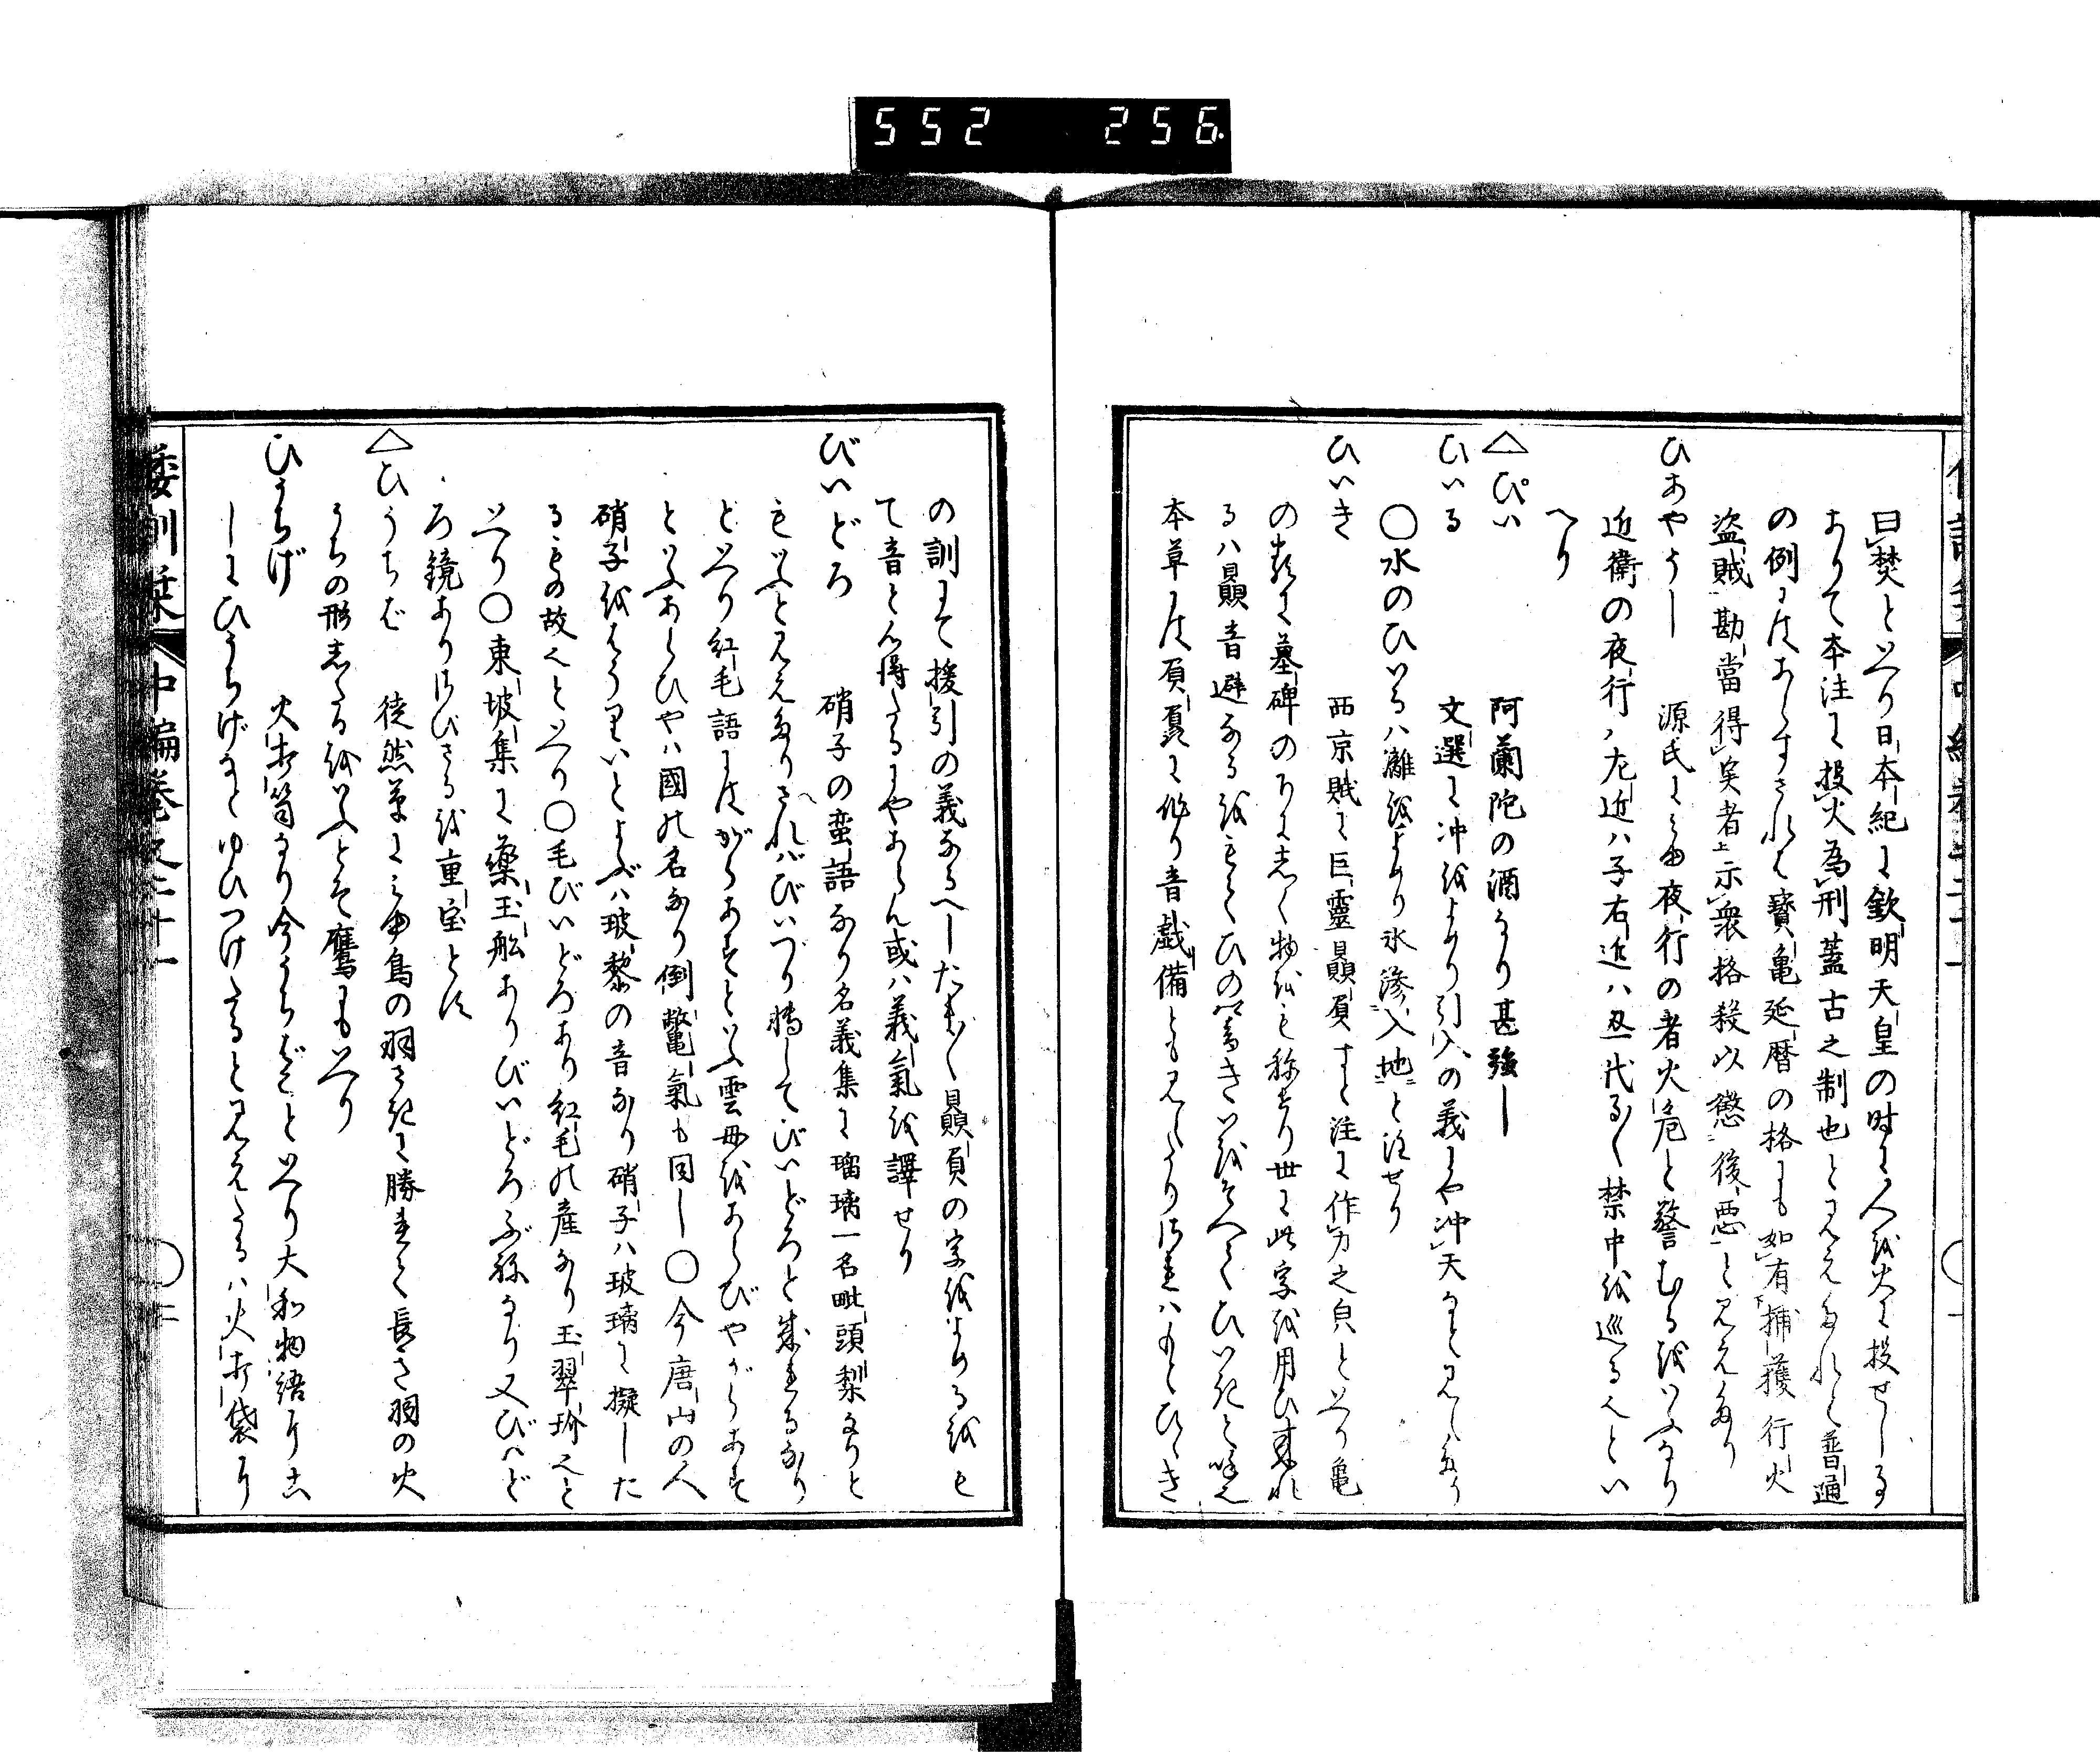 552 256
曰焚といへり日本紀に欽明天皇の时に人を火に投せし事
ありて本注に投火為刑蓋古之制也と見えたれと普通
の例にはあらすされと寳亀延暦の格にも如有捕獲行火
盗賊勘當得実者示衆格殺以懲後悪と見えたり
ひあやうし 源氏にみゆ夜行の者火危と警むるをいふなり
近衛の夜行ノ左近ハ子右近ハ丑一代る〱禁中を巡る也とい
へり
△ぴい 阿蘭陀の酒なり甚強し
ひいる 文選に冲をよめり引入の義にや冲天なと見えたり
○水のひいるハ離をよめり氷滲入地と注せり
ひいき 西京賦に巨靈贔屓すと注に作力之皃といへり亀
の類に墓碑の下にしく物をも称せり世に此字を用ひ来れ
る八贔音避なるをもてひの響きいをそへてひいきと唱え
本草には屓屭に作り音戯備とも見えたりされはもとひき
の訓にて援引の義なるへしたま〱贔屓の字をよめるをも
て音と心得たるにやあらん或ハ義氣を譯せり
びいどろ 硝子の蛮語なり名義集に瑠璃一名毗頭梨なりと
もいふと見えたりされバびいづり轉してびいどろと成れるなり
といへり紅毛語にはがらあすといふ雲母をあらびやがらあす
といふあらひやハ國の名なり倒鼈氣も同し○今唐山の人
硝子をはうりいとよぶハ玻黎の音なり硝子ハ玻璃に擬した
るもの故也といへり○毛びいどろあり紅毛の産なり玉翠玠也と
いへり○東坡集に藥玉舩ありびいどろぶねなり又びいど
ろ鏡ありさびさるを重宝とす
△ひうちば 徒然草にみゆ鳥の羽さきに勝れて長き羽の火
うちの形したるをいふとそ鷹にもいへり
ひうちげ 火打笥なり今うちばこといへり大和物語におこ
しにひうちげなとゆひつけたると見えたるハ火打袋に
倭訓栞 中編巻之二十一 ○二